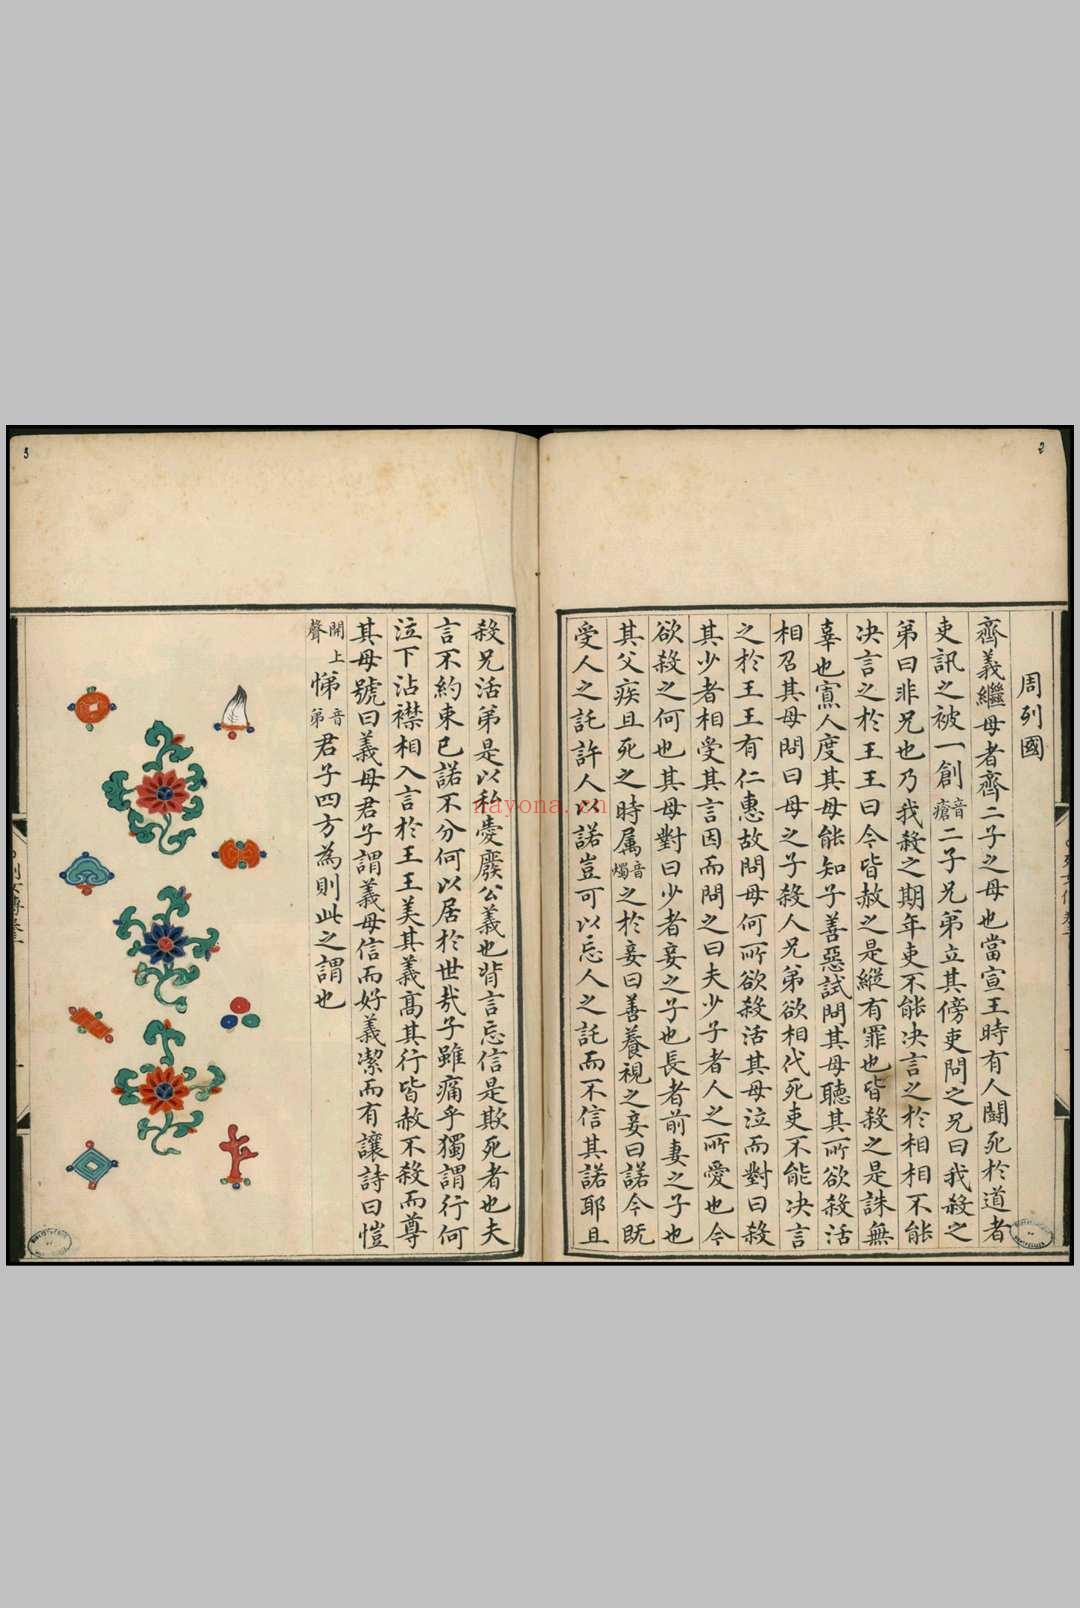 2
周列國
齊義繼母者齊二子之母也當宣王時有人鬭死於道者
吏訊之被一創音瘡二子兄弟立其傍吏問之兄曰我殺之
弟曰非兄也乃我殺之期年吏不能决言之於相相不能
决言之於王王曰今皆赦之是縱有罪也皆殺之是誅無
辜也寡人度其母能知子善惡試問其母聽其所欲殺活
相召其母問曰母之子殺人兄弟欲相代死吏不能决言
之於王王有仁惠故問母何所欲殺活其母泣而對曰殺
其少者相受其言因而問之曰夫少子者人之所愛也今
欲殺之何也其母對曰少者妾之子也長者前妻之子也
其父疾且死之時属音燭之於妾曰善養視之妾曰諾今既
受人之託許人以諾豈可以忘人之託而不信其諾耶且
3
殺兄活弟是以私愛廢公義也背言忘信是欺死者也夫
言不約束已諾不分何以居於世哉子雖痛乎獨謂行何
泣下沾襟相入言於王王美其義高其行皆赦不殺而尊
其母號曰義母君子謂義母信而好義潔而有讓詩曰愷
開上聲悌音弟君子四方為則此之謂也
nayona.cn